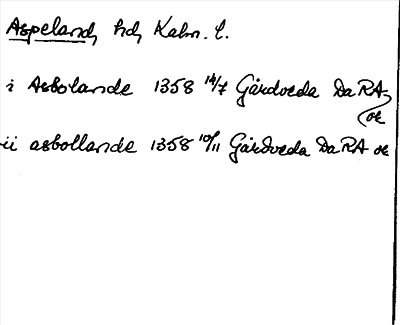 Aspeland, hd, Kalm. l.
i Asbolande 1358 14/7 Gårdveda DaRA
or
ii asbollande 1358 10/11 Gårdveda DaRA or